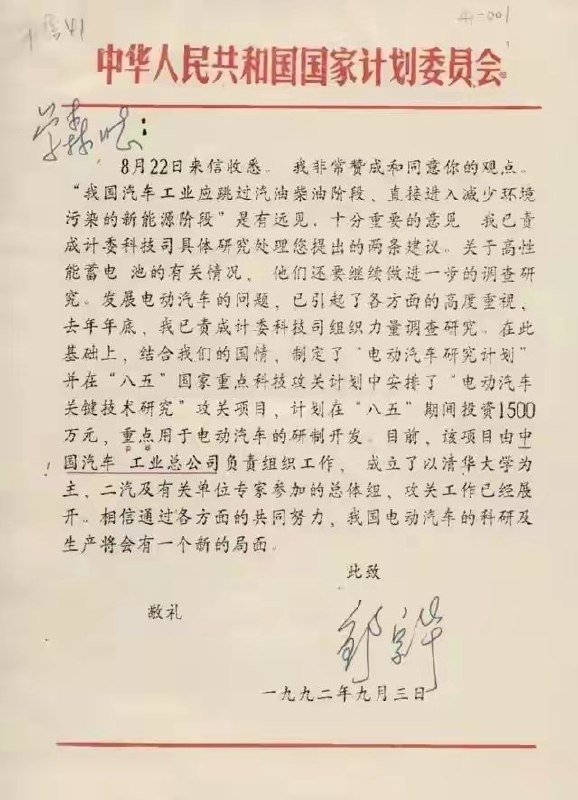 41-001
中华人民共和国国家计划委员会
学森：
8月22日来信收悉。 我非常赞成和同意你的观点。
“我国汽车工业应跳过汽油柴油阶段、直接进入减少环境
污染的新能源阶段”是有远见、十分重要的意见 我已责
成计委科技司具体研究处理您提出的两条建议。关于高性
能蓄电 池的有关情况， 他们还要继续做进一步的调查研
究。发展电动汽车的问题，已引起了各方面的高度重视，
去年年底，我已责成计委科技司组织力量调查研究。在此
基础上，结合我们的国情，制定了“电动汽车研究计划”
并在“八五”国家重点科技攻关计划中安排了“电动汽车
关键技术研究”攻关项目，计划在“八五”期间投资1500
万元，重点用于电动汽车的研制开发。目前，该项目由中
国汽车 工业总公司负责组织工作，成立了以清华大学为
主、二汽及有关单位专家参加的总体组，攻关工作已经展
开。相信通过各方面的共同努力，我国电动汽车的科研及
生产将会有一个新的局面。
此致
敬礼
邹家华
一九九二年九月三日